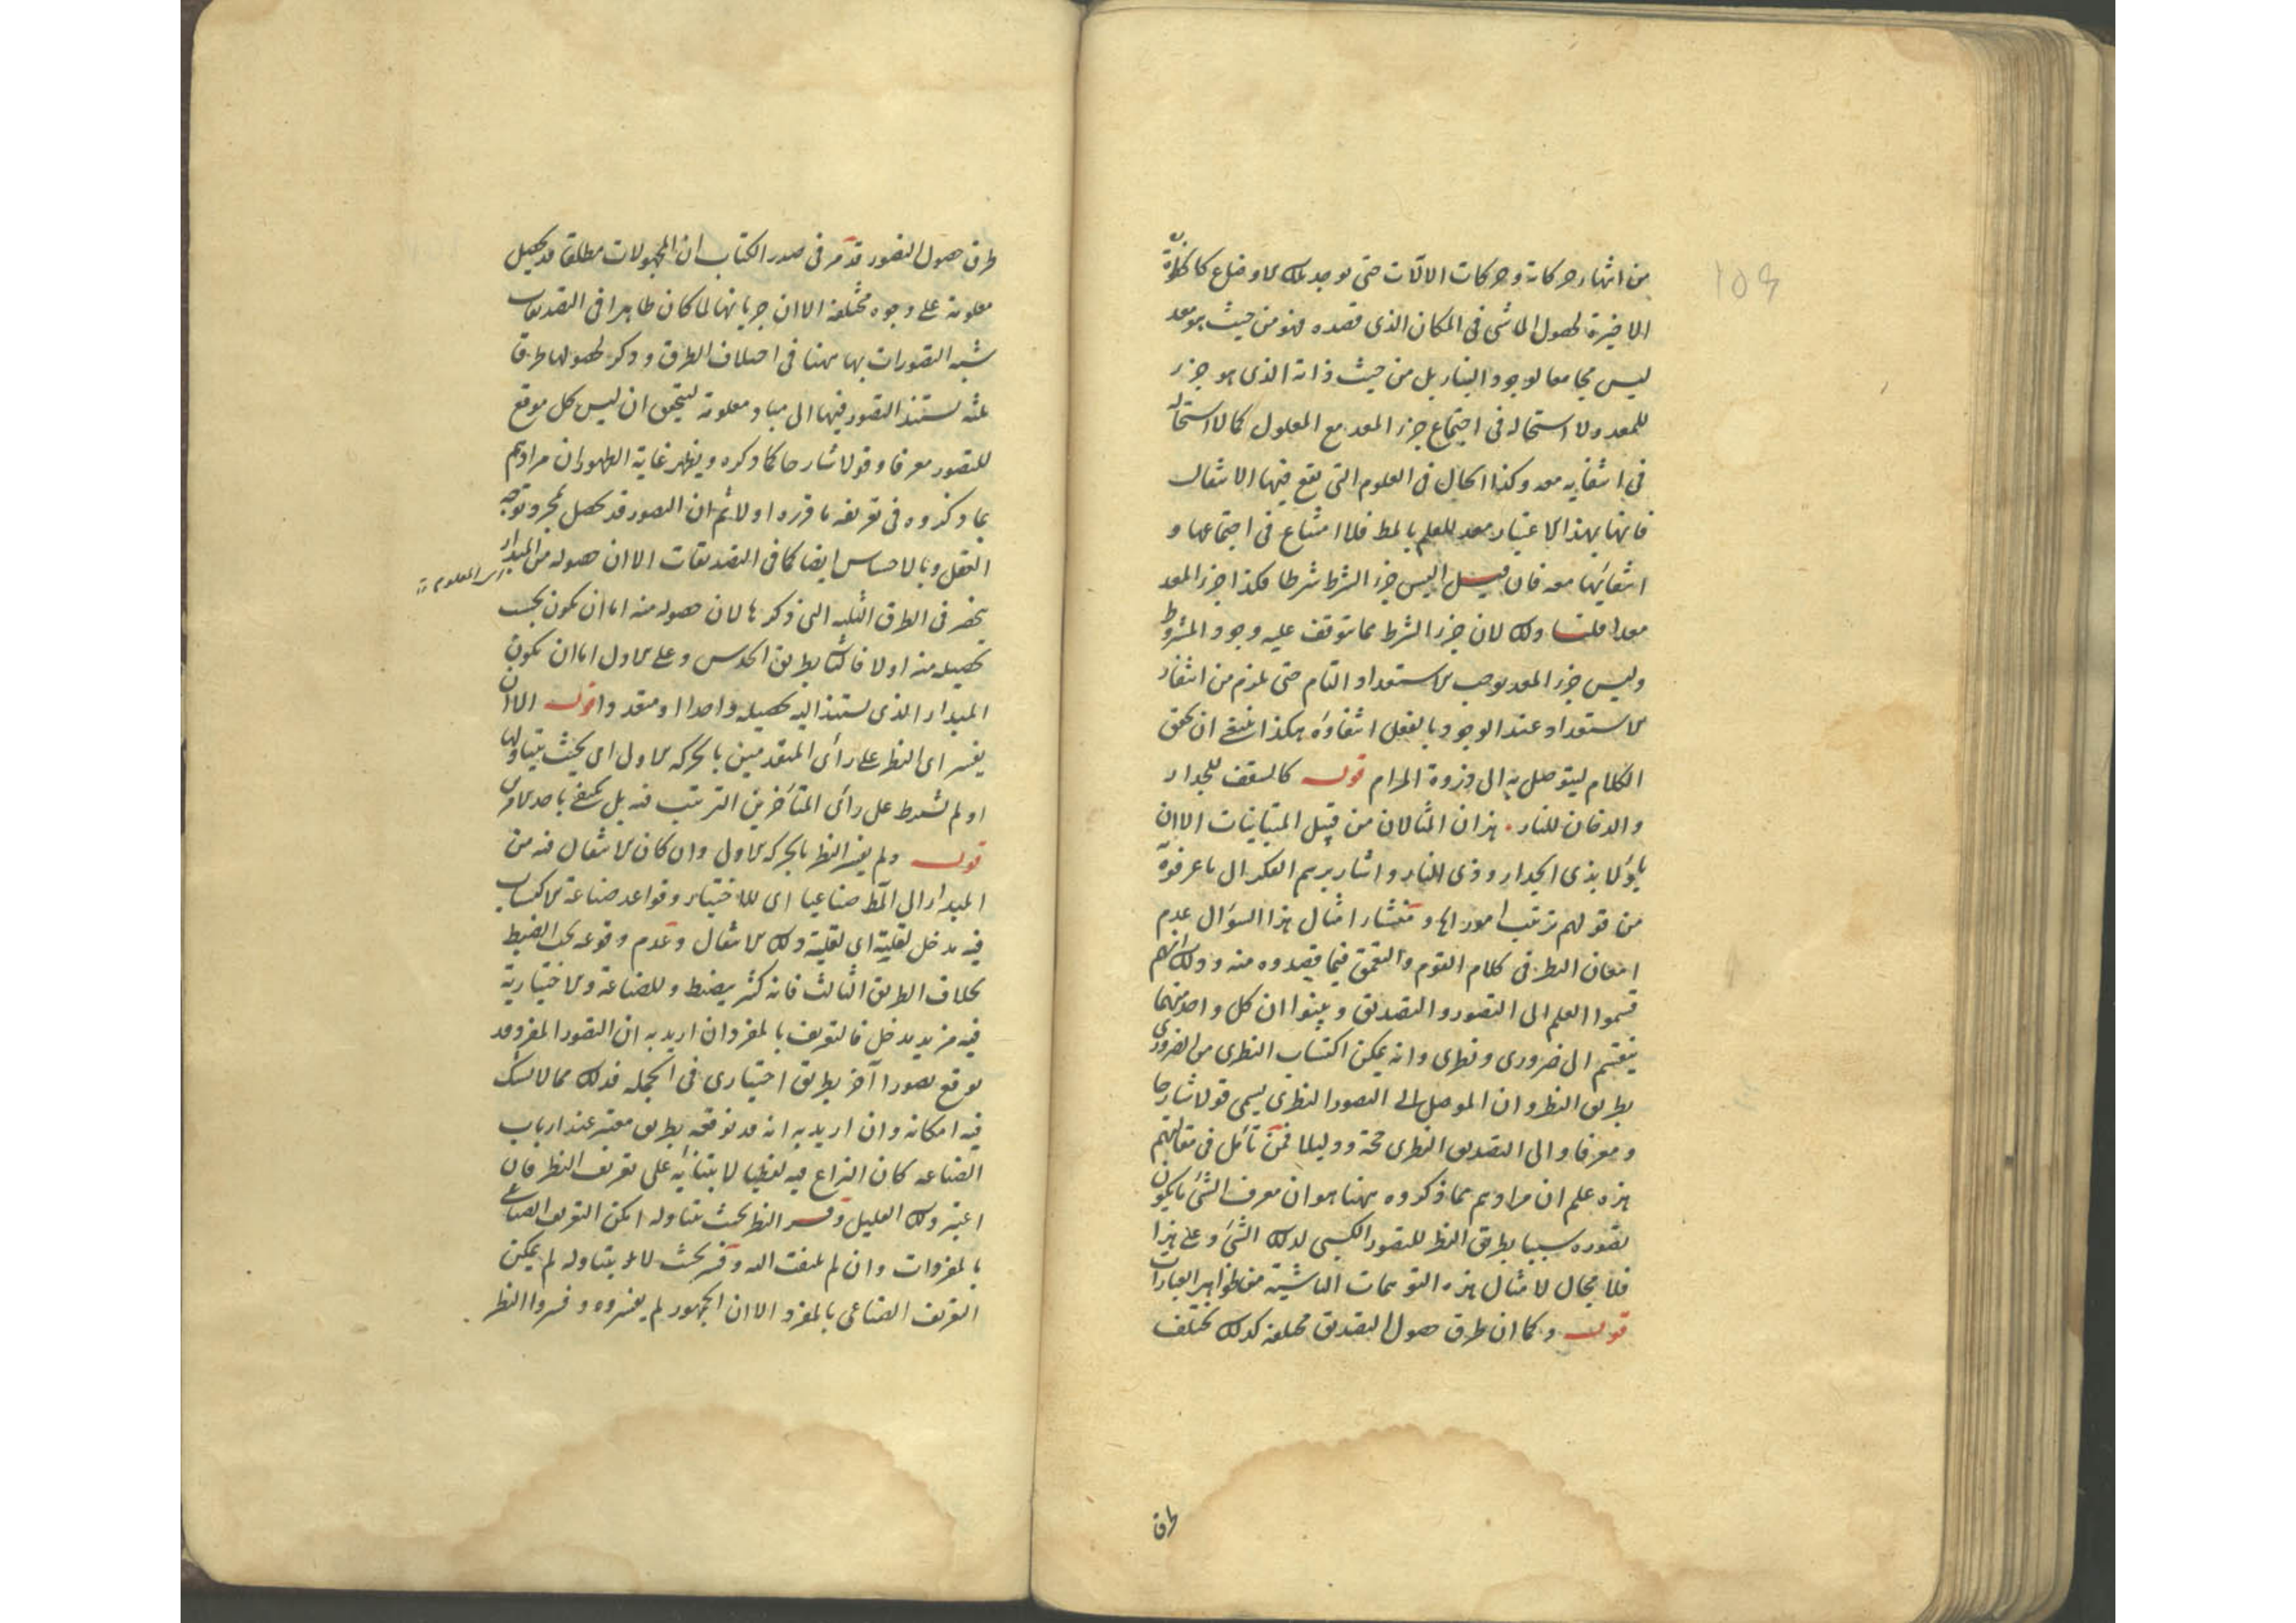 من انتهاء حركاته وحركات الآلات حتى توجد تلك الاوضاع كالخطوة
الاخيرة لحصول الماشى فى المكان الذى قصده فهو من حيث هو معد
ليس مجامعا لوجود البناء بل من حيث ذاته الذى هو جزء
للمعد ولا استحالة فى اجتماع جزء المعد مع المعلول كما لا استحالة
فى انتفايه معه وكذا الحال فى العلوم التى يقع فيها الانتقال
فانها بهذا الاعتبار معد للعلم بالمط فلا امتناع فى اجتماعها و
انتفائها معه فان قيل اليس جزء الشرط شرطا فكذا جزء المعد
معد قلت ذلك لان جزء الشرط مما يتوقف عليه وجود المشروط
وليس جزء المعد يوجب الاستعداد التام حتى يلزم من انتفاء
الاستعداد عند الوجود بالفعل انتفاؤه هكذا ينبغى ان يحقق
الكلام ليتوصل به الى ذروة المرام قوله كالسقف للجدار
والدخان للنار هذان المثالان من قبيل المتباينات الا ان
يأولا بذى الجدار وذى النار واشار برسم الفكر الى ما عرفوه
من قولهم ترتيب امور الخ ومنشاء امثال هذا السؤال عدم
امعان النظر فى كلام القوم والتعمق فيما قصدوه منه وذلك انهم
قسموا العلم الى التصور والتصديق وبينوا ان كل واحد منهما
ينقسم الى ضرورى ونظرى وانه يمكن اكتساب النظرى من الضرورى
بطريق النظر وان الموصل الى التصور النظرى يسمى قولا شارحا
ومعرفا والى التصديق النظرى حجة ودليلا فمن تأمل فى مقالتهم
هذه علم ان مرادهم مما ذكروه ههنا هو ان معرف الشئ ما يكون
تصوره سببا بطريق النظر للتصور الكسبى لذلك الشئ وعلى هذا
فلا مجال لامثال هذه التوهمات الناشية من ظواهر العبارات
قوله وكما ان طرق حصول التصديق مختلفة كذلك يختلف
طرق
طرق حصول التصور قد مر فى صدر الكتاب ان المجهولات مطلقا قد يحصل
معلومة على وجوه مختلفة الا ان جريانها لما كان ظاهرا فى التصديقات
شبه التصورات بها ههنا فى اختلاف الطرق وذكر لحصولها طرقا
ثلثه يستند التصور فيها الى مباد معلومة ليتحقق ان ليس كل موقع
للتصور معرفا وقولا شارحا كما ذكره ويظهر غاية الظهور ان مرادهم
بما ذكروه فى تعريفه ما قرره اولا ثم ان التصور قد يحصل بمجرد توجه
العقل وبالاحساس ايضا كما فى التصديقات الا ان حصوله من المبدا
المعلوم
ينحصر فى الطرق الثلثه التى ذكرها لان حصوله منه اما ان يكون بحسب
تحصيله منه اولا فالثانى بطريق الحدس وعلى الاول اما ان يكون
المبداء الذى يستند اليه تحصيله واحدا او متعددا قوله الا ان
يفسر اى النظر على رأى المتقدمين بالحركه الاولى اى بحيث يتناولها
او لم يشترط على رأى المتأخرين الترتيب فيه بل يكتفى باحد الامرين
قوله ولم يفسر النظر بالحركه الاولى وان كان الانتقال فيه من
المبداء الى المط صناعيا اى للاختيار وقواعد صناعة الاكتساب
فيه مدخل لقلته اى لقلة ذلك الانتقال وعدم وقوعه تحت الضبط
بخلاف الطريق الثالث فانه كثير منضبط وللصناعة والاختيارية
فيه مزيد مدخل فالتعريف بالمفرد ان اريد به ان التصور المفرد قد
يوقع تصورا آخر بطريق اختيارى فى الجملة فذلك مما لا شك
فيه امكانه وان اريد به انه قد توقعه بطريق معتبر عند ارباب
الصناعه كان النزاع فيه لفظيا لابتنائه على تعريف النظر فان
اعتبر ذلك القليل وفسر النظر بحيث يتناوله امكن التعريف الصناعى
بالمفردات وان لم يلتفت اليه وفسر بحيث لا يتناوله لم يمكن
التعريف الصناعى بالمفرد الا ان الجمهور لم يعتبروه وفسروا النظر